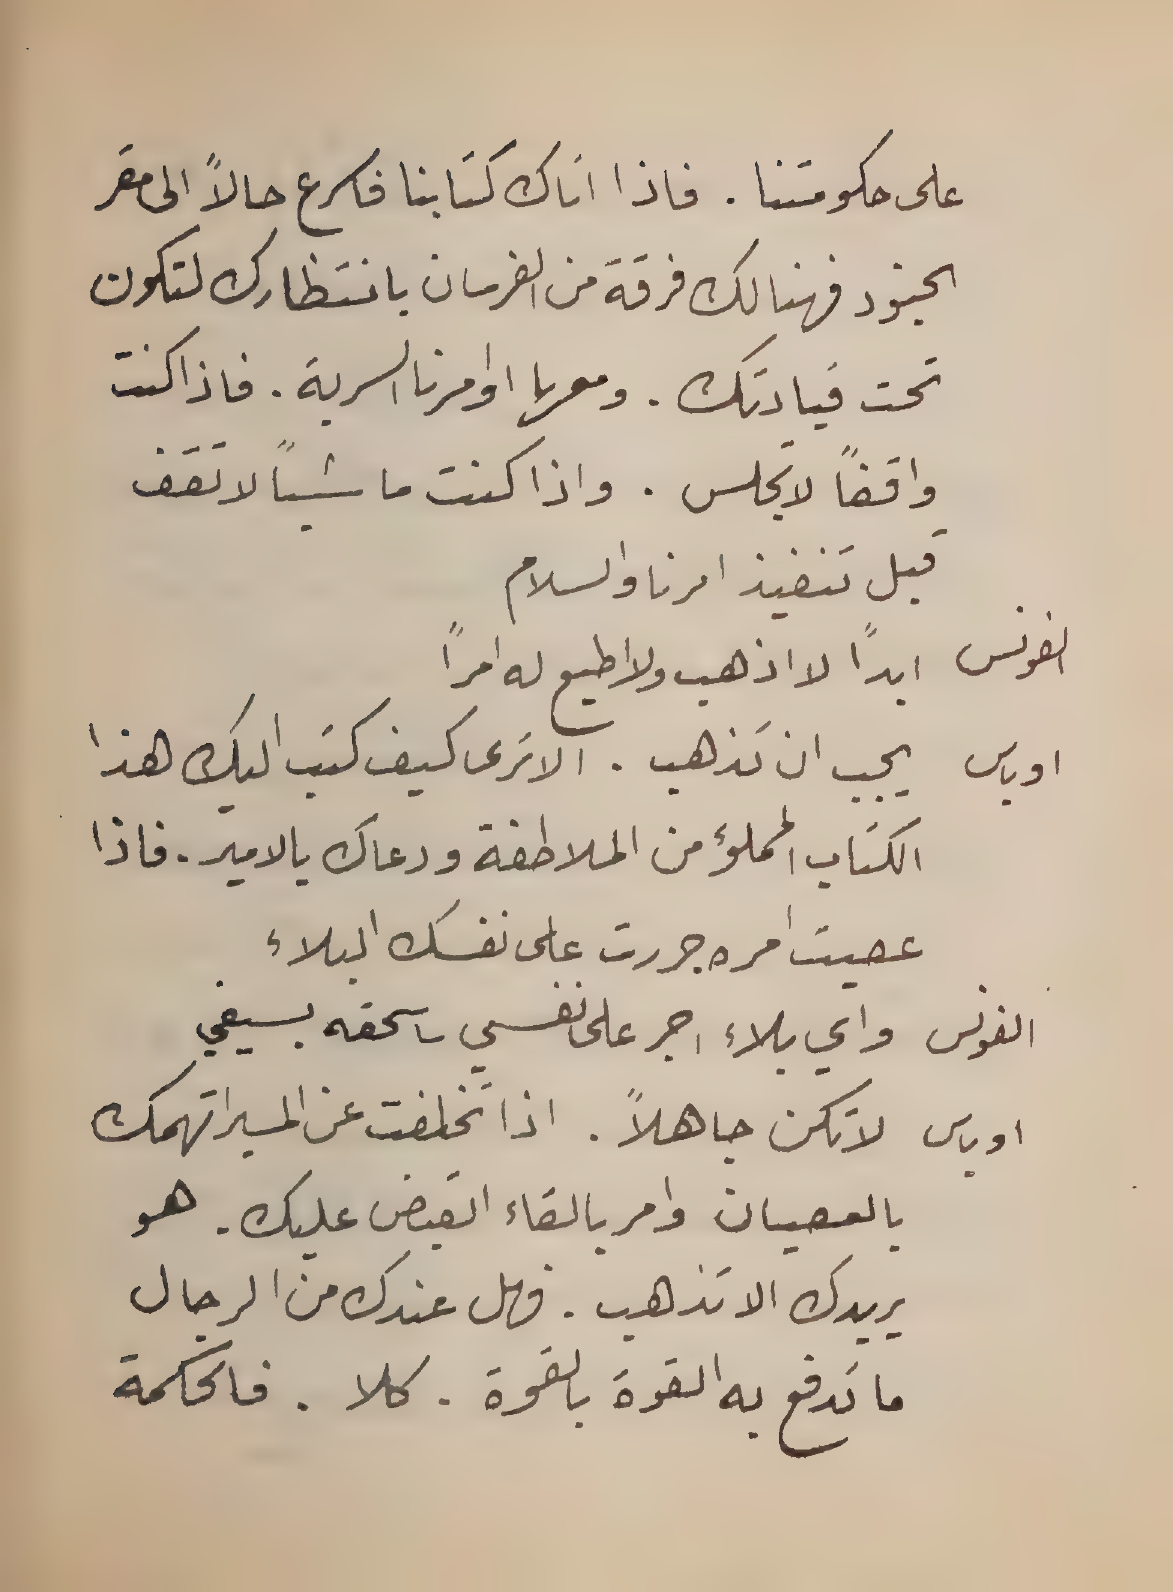 على حكومتنا . فاذا اتاك كتابنا فاسرع حالاً الى مقر
الجنود فهنالك فرقة من الفرسان بانتظارك لتكون
تحت قيادتك . ومعها اوامرنا السرية . فاذا كنت
واقفاً لا تجلس . واذا كنت ماشياً لا تقف
قبل تنفيذ امرنا والسلام
الفونس ابداً لا اذهب ولا اطيع له امراً
اوباس يجب ان تذهب . الا ترى كيف كتب اليك هذا
الكتاب المملؤ من الملاطفة ودعاك بالامير . فاذا
عصيت امره جررت على نفسك البلاء
الفونس واي بلاء اجر على نفسي سأسحقه بسيفي
اوباس لا تكن جاهلاً . اذا تخلفت عن المسير اتهمك
بالعصيان وامر بالقاء القبض عليك . هو
يريدك الا تذهب . فهل عندك من الرجال
ما تدفع به القوة بالقوة . كلا . فالحكمة